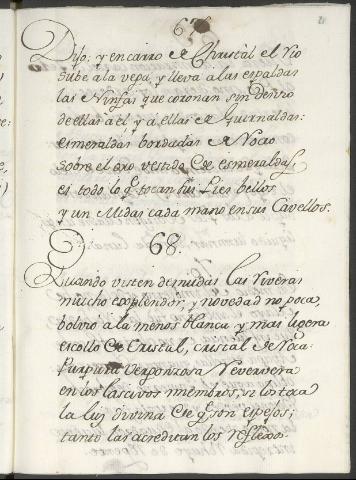 67
Dijo; y en carro de Christal el Rio
sube a la vega, y lleva a las espaldas
las Ninfas que coronan sin
de ellas a el y a ellas de Guirnaldas:
esmeraldas bordadas de Rocio
sobre el oro vestido de esmeraldas,
es todo lo q tocan sus pies bellos
y un Midas cada mano en sus Cavellos.
68.
Quando visten desnudas las Riveras
mucho explendor, y novedad no poca,
bolvio a la menos blanca y mas ligera
escollo de Cristal, cristal de Roca
Purpura vergonzosa Reververa
en los lascivos miembros, si los toca
la luz divina de q son espejos;
tanto las acreditan los reflexos.